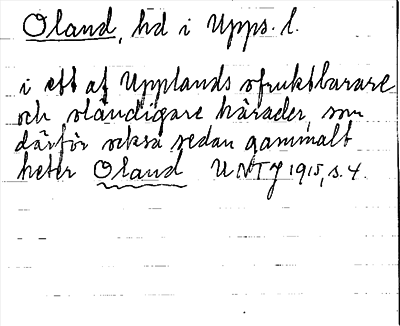 Oland, hd i Upps. l.
i ett af Upplands ofruktbarare
och oländigare härader, som
därför också sedan gammalt
heter Oland UNT J 1915, s. 4.